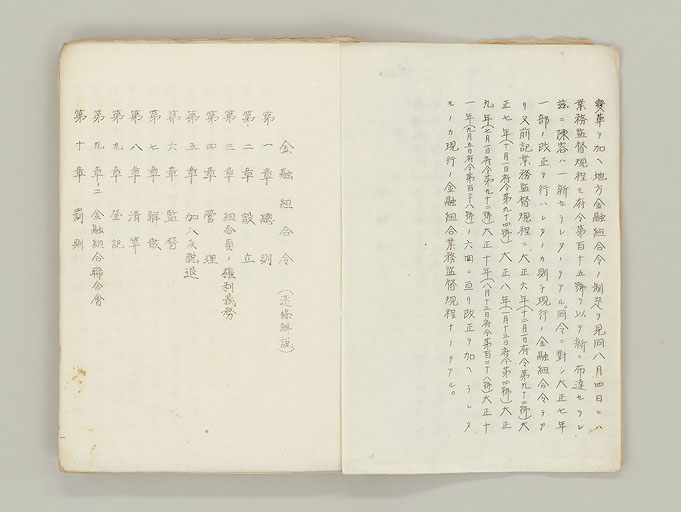 變革ヲ加ヘ地方金融組合令ノ制定ヲ見同八月四日ニハ
業務監督規程モ府令第百十五號ヲ以テ新ニ布達セラレ
茲ニ陳容ハ一新セラレタノテアル。同令ニ對シ大正七年
一部ノ改正ヲ行ハレタノカ則チ現行ノ金融組合令テア
リ又前記業務監督規程ニ大正六年(十二月一日府令第九十二號)大
正七年(十月一日府令第九十四號)大正八年(一月十三日府令第四號)大正
九年(七月一日府令第九十三號)大正十年(八月十三日府令第百二十八號)大正十
一年(九月五日府令第百二十八號)ノ六回ニ亘リ改正ヲ加ヘラレタ
モノカ現行ノ金融組合業務監督規程ナノテアル。
金融組合令
(逐條解說)
第一章 總則
第二章 設立
第三章 組合員ノ權利義務
第四章 管理
第五章 加入及脫退
第六章 監督
第七章 解散
第八章 淸算
第九章 登記
第九章ノ二 金融組合聯合會
第十章 罰則